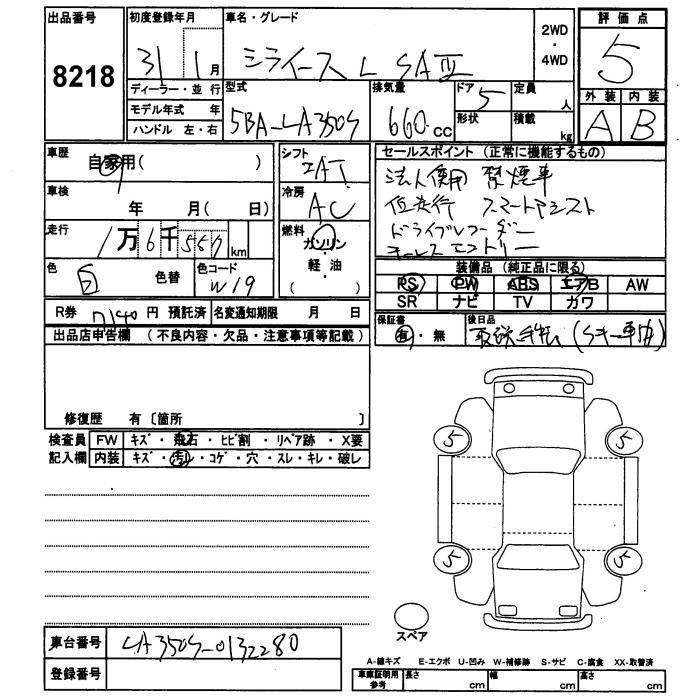 出品番号
8218
初度登録年月
31 1月
ディーラー・並行
モデル年式 年
ハンドル 左・右
車名・グレード
ミライース L SAⅢ
2WD
・
4WD
評価点
5
外装 内装
A B
型式
5BA-LA350S
排気量
660 cc
ドア
5
形状
定員
人
積載
kg
車歴
自家用( )
車検
年 月( 日)
走行
1万6千557km
色
白 色替
色コード
W19
シフト
IAT
冷房
AC
燃料
ガソリン
・
軽・油
( )
セールスポイント (正常に機能するもの)
法人使用 禁煙車
低走行 スマートアシスト
ドライブレコーダー
キーレスエントリー
装備品 (純正品に限る)
PS PW ABS エアB AW
SR ナビ TV カワ
R券 7140円 預託済 名変通知期限 月 日
保証書
有・無
後日品
取説
出品店申告欄 (不良内容・欠品・注意事項等記載)
修復歴 有〔箇所 〕
検査員 FW キズ・飛石・ヒビ割・リペア跡・X要
記入欄 内装 キズ・汚レ・コゲ・穴・スレ・キレ・破レ
5 5
5 5
スペア
車台番号 LA350S-0132280
登録番号
A-線キズ E-エクボ U-凹み W-補修跡 S-サビ C-腐食 XX-取替済
車庫証明用
参考
長さ cm 幅 cm 高さ cm